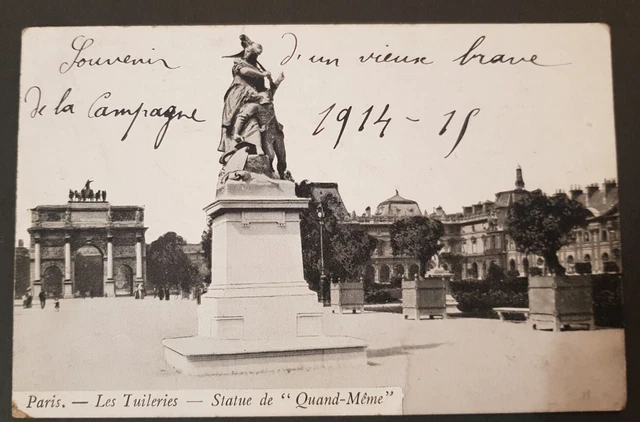 Souvenir d'un vieux brave
de la Campagne 1914-15
Paris. — Les Tuileries — Statue de "Quand-Même"